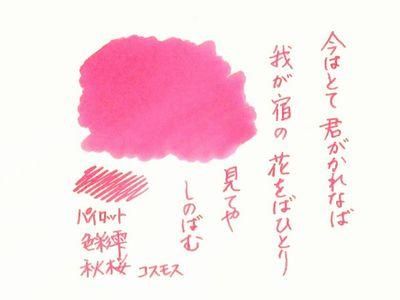 今はとて 君がかれなば
我が宿の 花をばひとり
見てや
しのばむ
パイロット
色彩雫
秋桜 コスモス